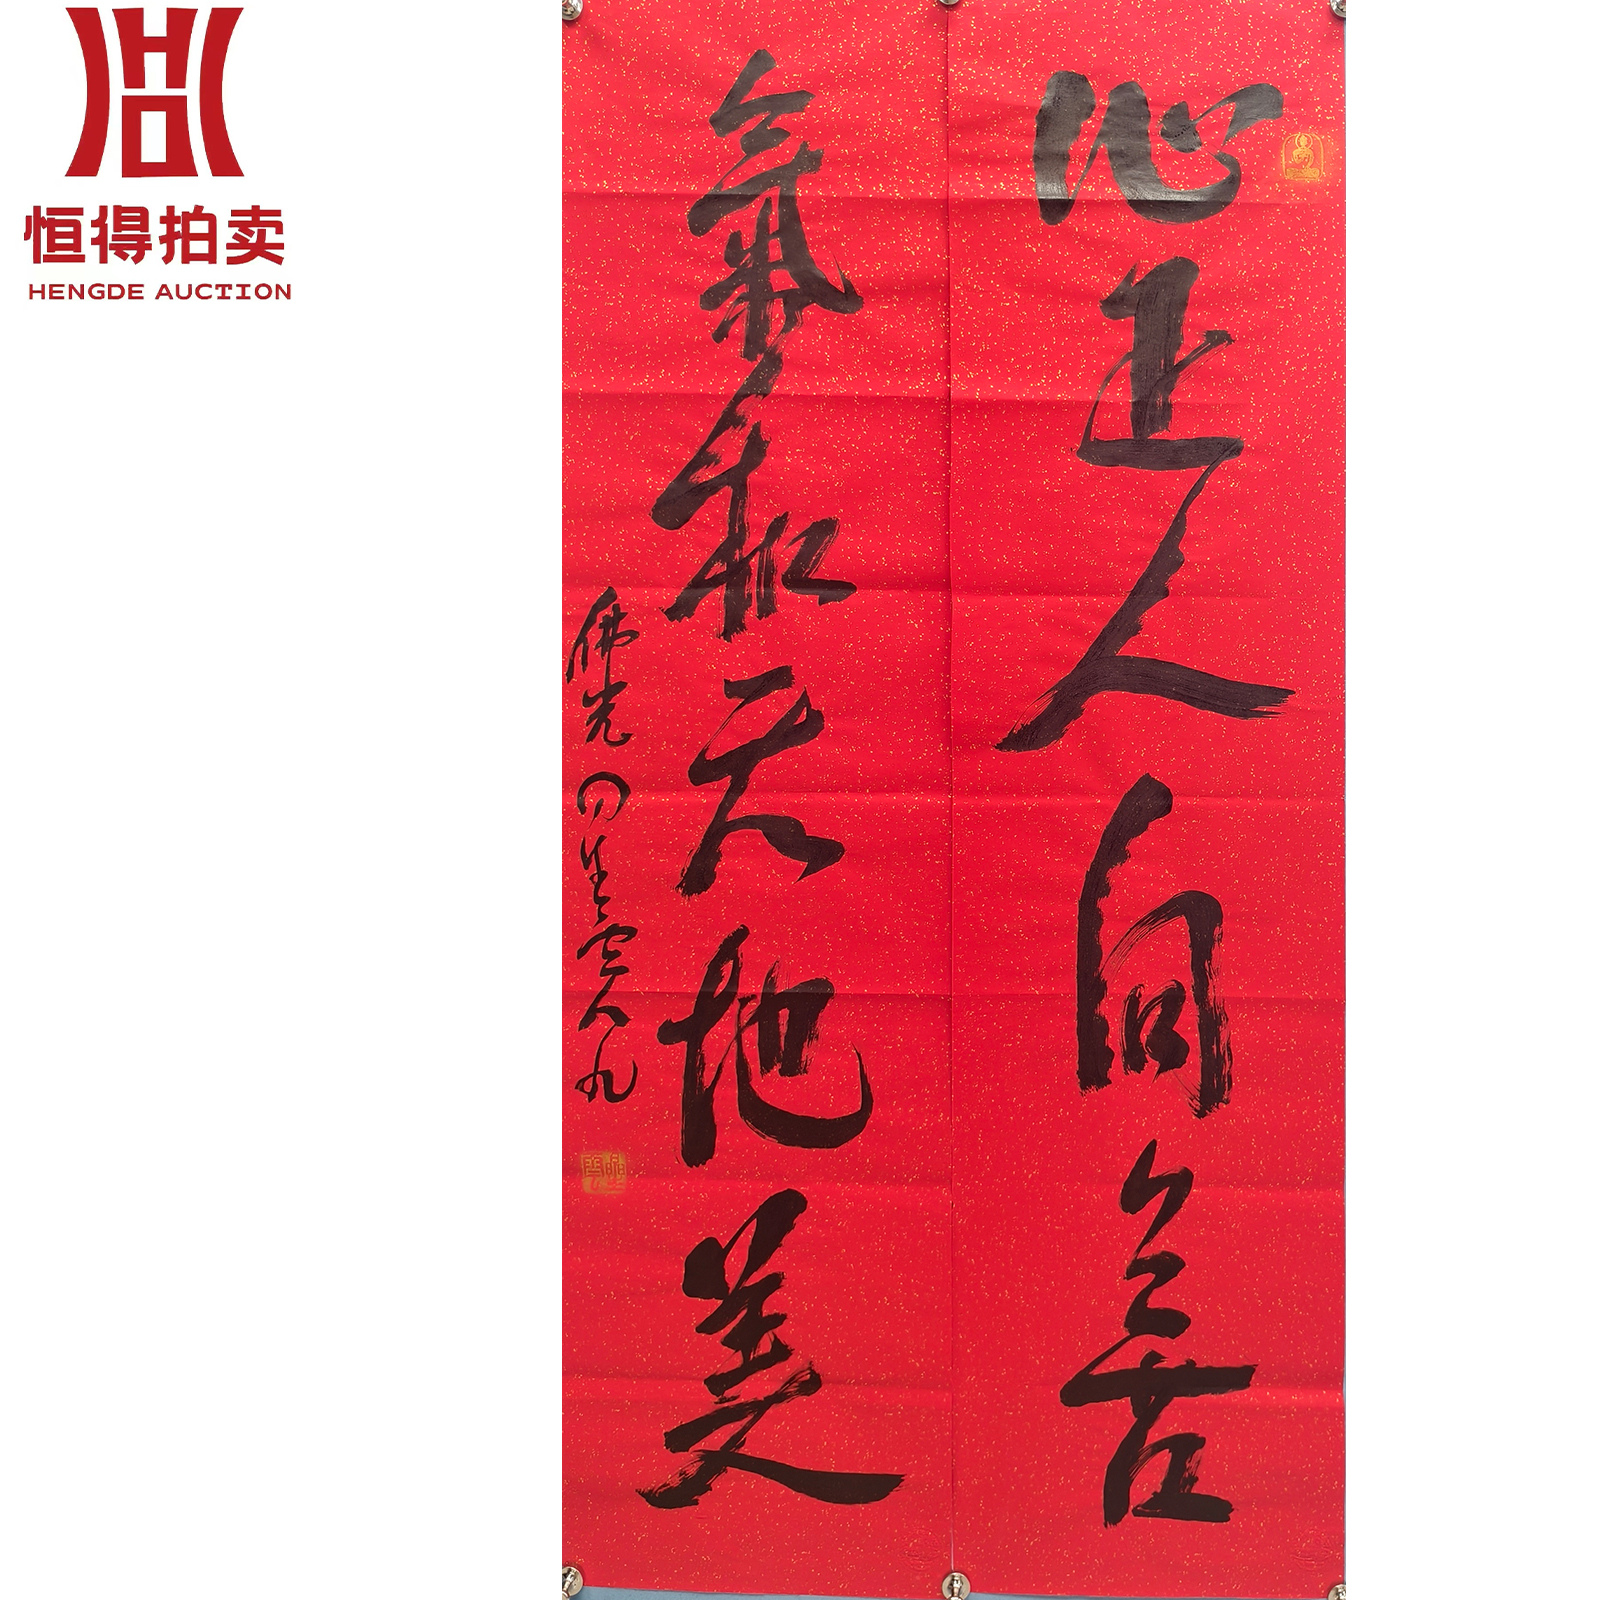 恒得拍卖
HENGDE AUCTION
心正人自善
氣和天地美
佛光
星雲
九